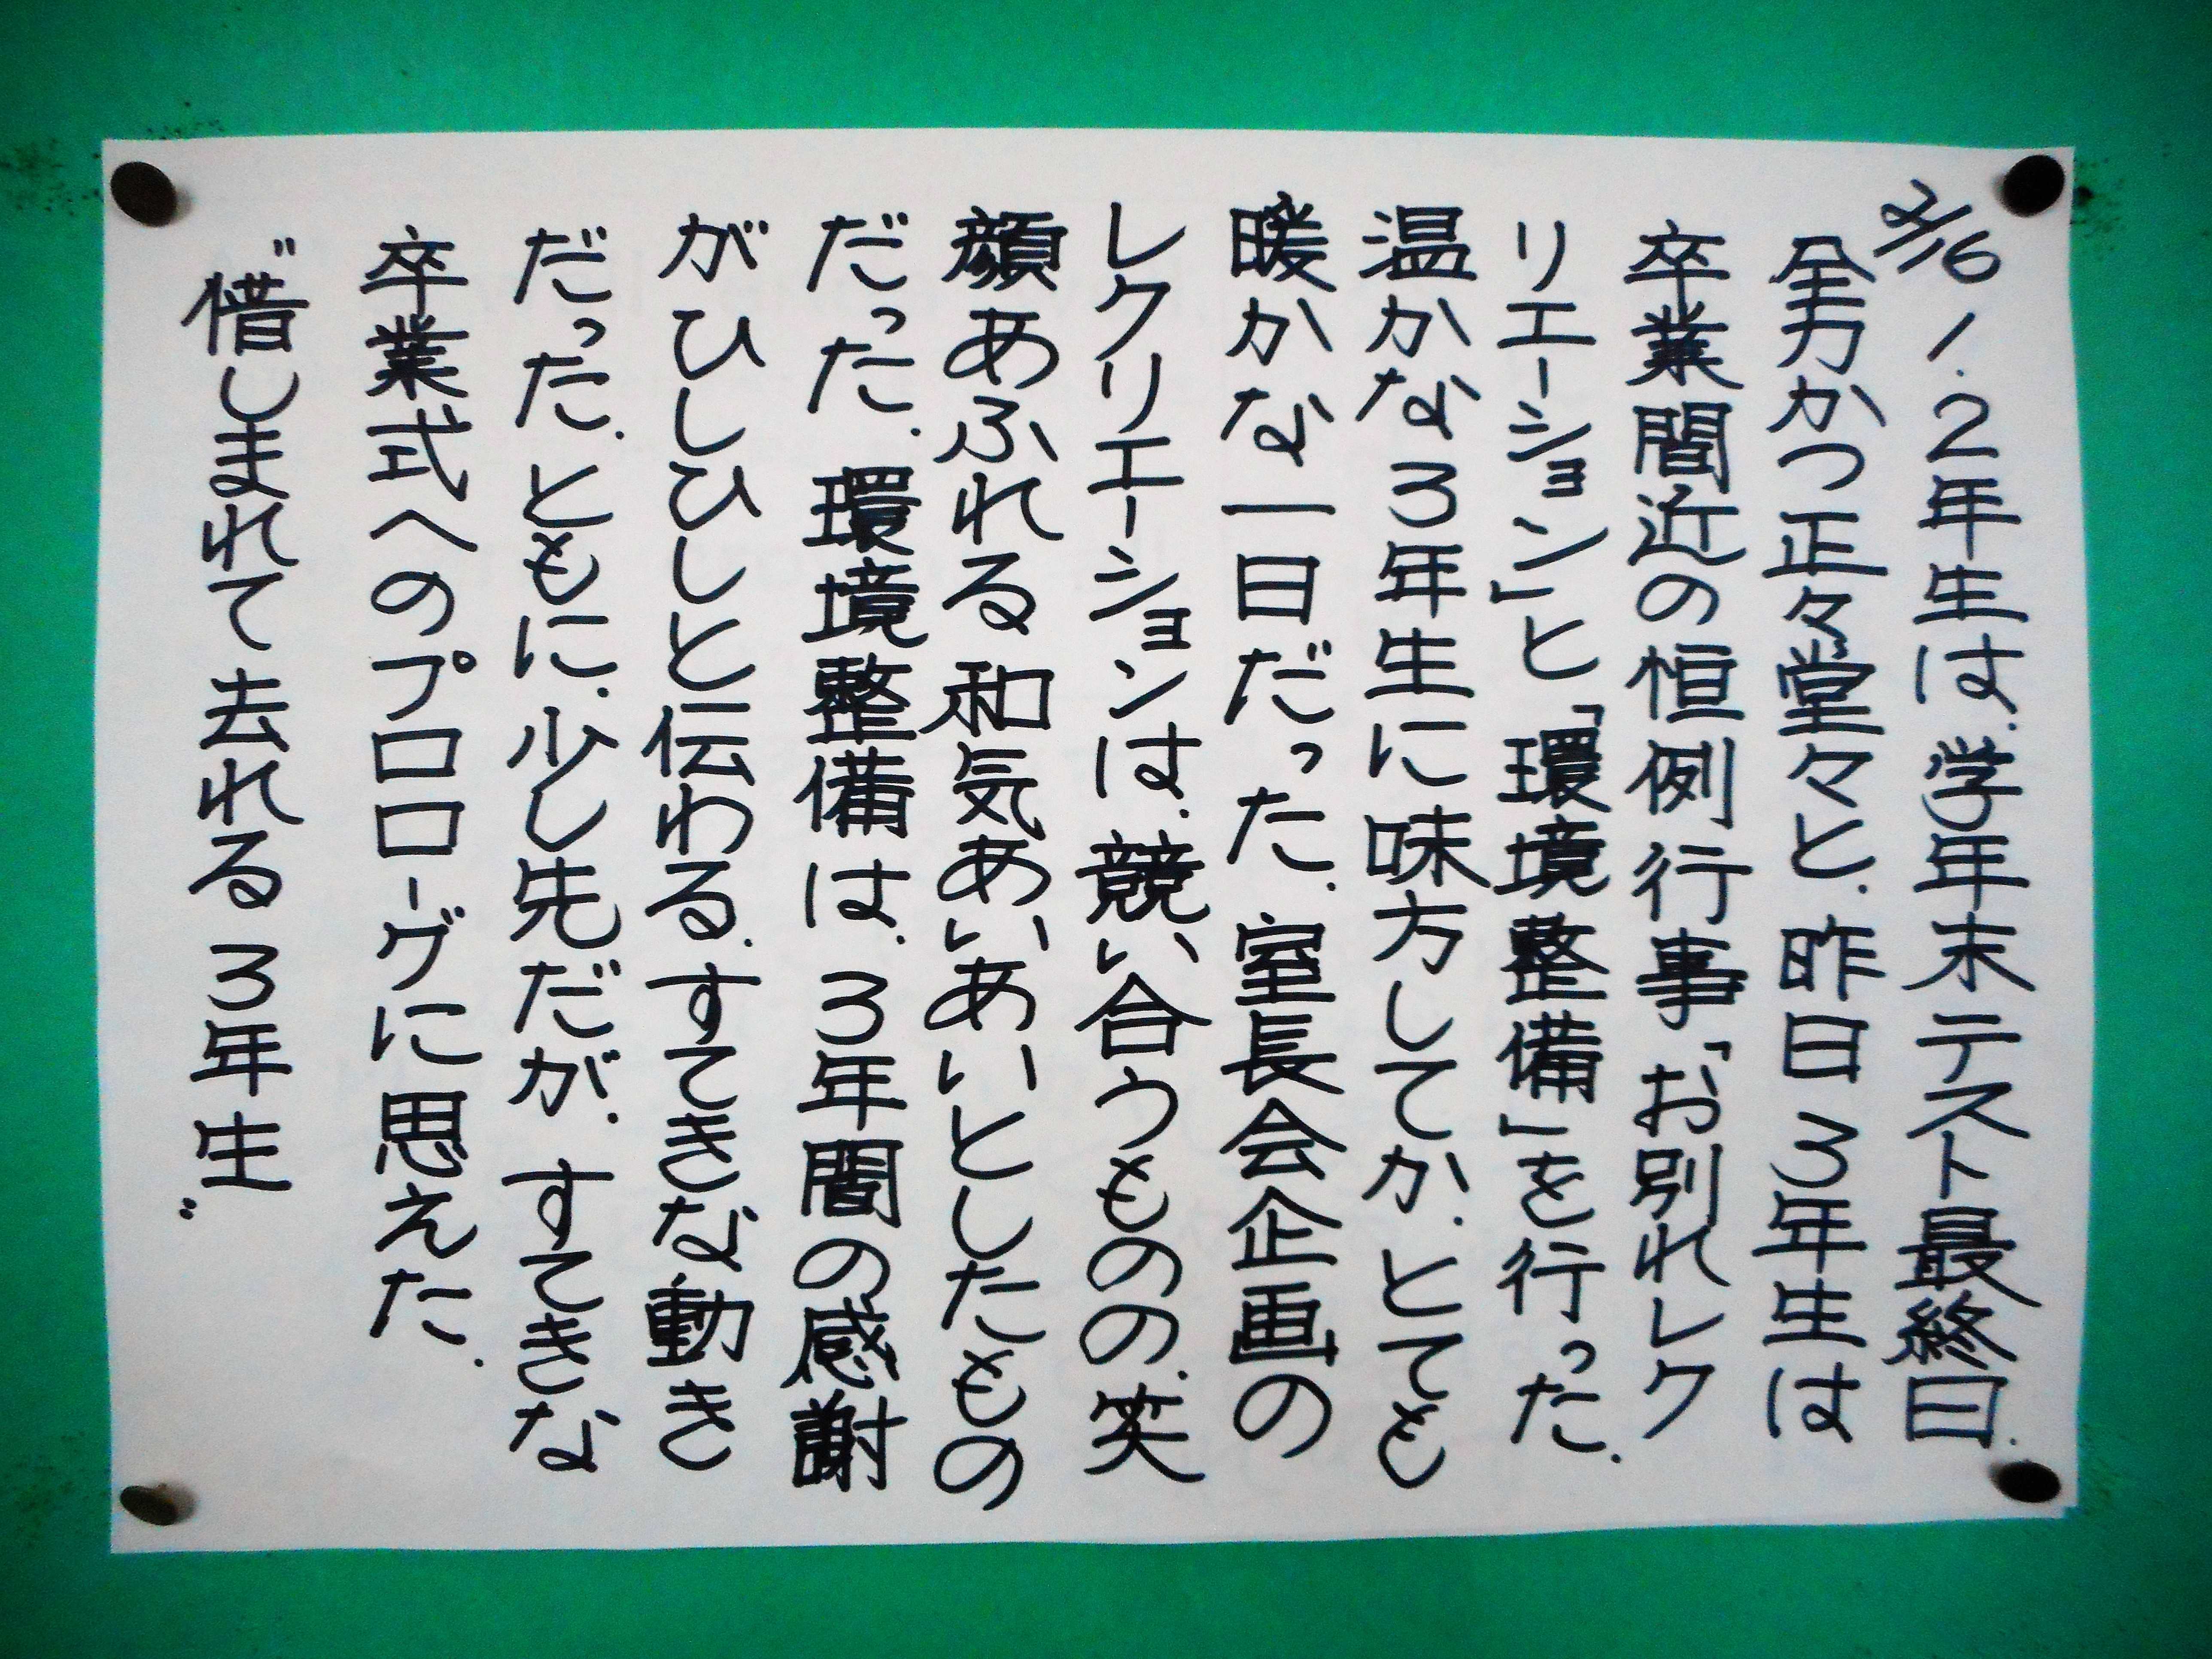 2/16 1.2年生は、学年末テスト最終日。
全力かつ正々堂々と。昨日3年生は
卒業間近の恒例行事「お別れレク
リエーション」と「環境整備」を行った。
温かな3年生に味方してか、とても
暖かな一日だった。室長会企画の
レクリエーションは、競い合うものの、笑
顔あふれる和気あいあいとしたもの
だった。環境整備は、3年間の感謝
がひしひしと伝わる、すてきな動き
だった。ともに、少し先だが、すてきな
卒業式へのプロローグに思えた。
"惜しまれて去れる3年生"